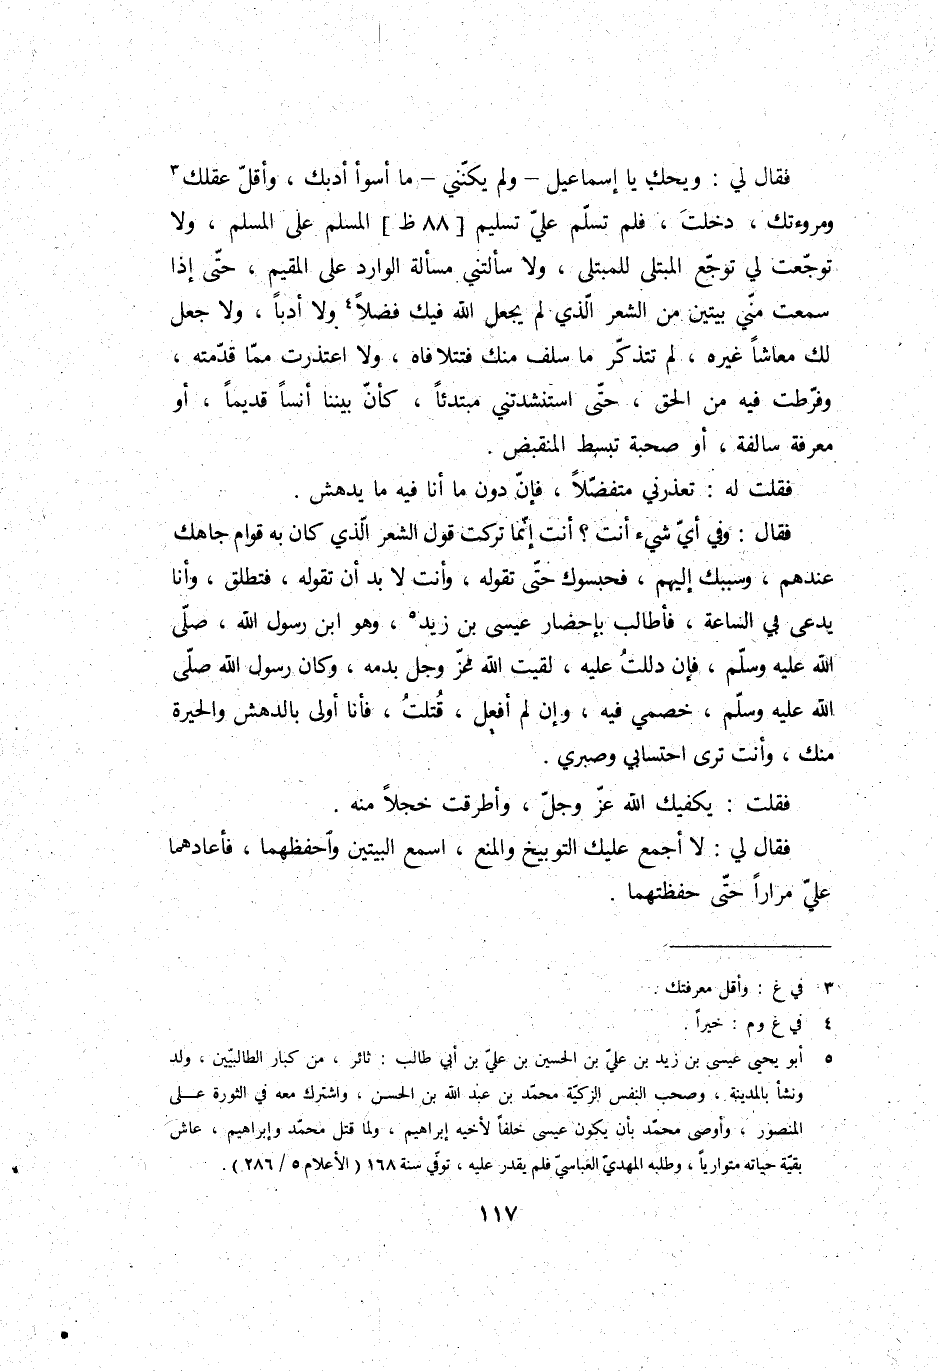 فقال لي : ويحك يا إسماعيل – ولم يكنّني – ما أسوأ أدبك ، وأقلّ عقلك٣
ومروءتك ، دخلتَ ، فلم تسلّم عليّ تسليم [ ٨٨ ظ ] المسلم على المسلم ، ولا
توجّعت لي توجّع المبتلى للمبتلى ، ولا سألتني مسألة الوارد على المقيم ، حتّى إذا
سمعت منّي بيتين من الشعر الّذي لم يجعل الله فيك فضلاً٤ ولا أدباً ، ولا جعل
لك معاشاً غيره ، لم تتذكّر ما سلف منك فتتلافاه ، ولا اعتذرت ممّا قدّمته ،
وفرّطت فيه من الحق ، حتّى استنشدتني مبتدئاً ، كأنّ بيننا أنساً قديماً ، أو
معرفة سالفة ، أو صحبة تبسط المنقبض .
فقلت له : تعذرني متفضّلاً ، فإنّ دون ما أنا فيه ما يدهش .
فقال : وفي أيّ شيء أنت ؟ أنت إنّما تركت قول الشعر الّذي كان به قوام جاهك
عندهم ، وسببك إليهم ، فحبسوك حتّى تقوله ، وأنت لا بد أن تقوله ، فتطلق ، وأنا
يدعى في الساعة ، فأطالب بإحضار عيسى بن زيد٥ ، وهو ابن رسول الله ، صلّى
الله عليه وسلّم ، فإن دللتُ عليه ، لقيت الله عزّ وجل بدمه ، وكان رسول الله صلّى
الله عليه وسلّم ، خصمي فيه ، وإن لم أفعل ، قُتلتُ ، فأنا أولى بالدهش والحيرة
منك ، وأنت ترى احتسابي وصبري .
فقلت : يكفيك الله عزّ وجلّ ، وأطرقت خجلاً منه .
فقال لي : لا أجمع عليك التوبيخ والمنع ، اسمع البيتين وٱحفظهما ، فأعادهما
عليّ مراراً حتّى حفظتهما .
٣ في غ : وأقل معرفتك .
٤ في غ وم : خيراً .
٥ أبو يحيى عيسى بن زيد بن عليّ بن الحسين بن عليّ بن أبي طالب : ثائر ، من كبار الطالبيّين ، ولد
ونشأ بالمدينة ، وصحب النفس الزكيّة محمّد بن عبد الله بن الحسن ، واشترك معه في الثورة عــلى
المنصور ، وأوصى محمّد بأن يكون عيسى خلفاً لأخيه إبراهيم ، ولما قتل محمّد وإبراهيم ، عاش
بقيّة حياته متوارياً ، وطلبه المهديّ العباسيّ فلم يقدر عليه ، توفّي سنة ١٦٨ ( الأعلام ٥ / ٢٨٦ ) .
١١٧